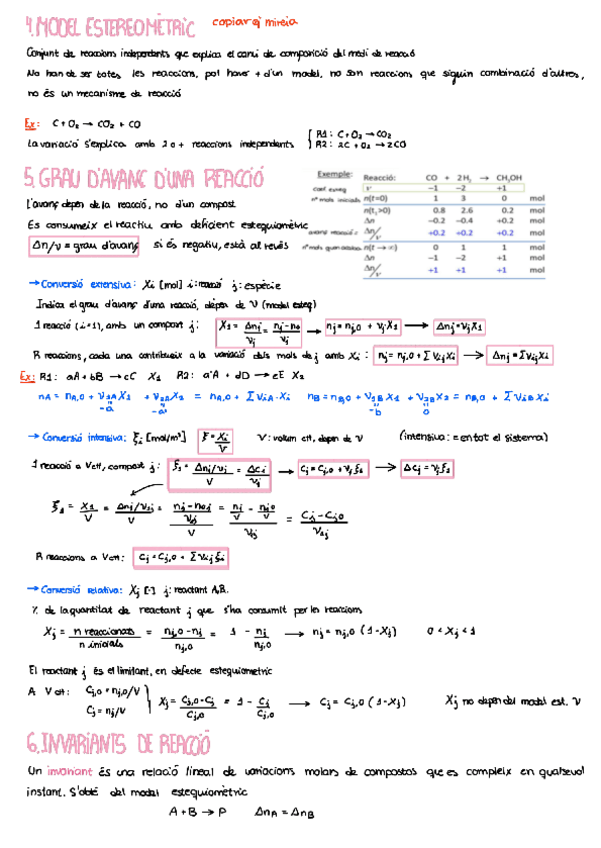 4. MODEL ESTEREOMÈTRIC copiar ej mireia
Conjunt de reaccions independents que explica el canvi de composició del medi de reacció
No han de ser totes les reaccions, pot haver + d'un model, no son reaccions que siguin combinació d'altres,
no és un mecanisme de reacció
Ex: C + O₂ → CO₂ + CO
La variació s'explica amb 2 o + reaccions independents { R1: C + O₂ → CO₂
R2: 2C + O₂ → 2CO
5. GRAU D'AVANÇ D'UNA REACCIÓ
L'avanç depen de la reacció, no d'un compost
Es consumeix el reactiu amb deficient estequiomètric
Δn/ν = grau d'avanç si és negatiu, està al revés
Exemple: Reacció: CO + 2H₂ → CH₃OH
coef. esteq ν −1 −2 +1
nº mols inicials n(t=0) 1 3 0 mol
n(t₁>0) 0.8 2.6 0.2 mol
Δn −0.2 −0.4 +0.2 mol
avanç reacció = Δn/ν +0.2 +0.2 +0.2 mol
n(t → ∞) 0 1 1 mol
Δn −1 −2 +1 mol
Δn/ν +1 +1 +1 mol
→ Conversió extensiva: Xi [mol] i: reacció j: espècie
Indica el grau d'avanç d'una reacció, depen de ν (model esteq)
1 reacció (i=1), amb un compost j: X₁ = Δnj/νj = nj-n₀/νj → nj = nj,0 + νj X₁ → Δnj = νj X₁
R reaccions, cada una contribueix a la variació dels mols de j amb Xi: nj = nj,0 + Σνij Xi → Δnj = Σνij Xi
Ex: R1: aA + bB → cC X₁ R2: a'A + dD → eE X₂
nA = nA,0 + ν1A X₁ + ν2A X₂ = nA,0 + ΣνiA·Xi nB = nB,0 + ν1B X₁ + ν2B X₂ = nB,0 + ΣνiB Xi
-a -a' -b 0
→ Conversió intensiva: ξi [mol/m³] ξ = Xi/V V: volum ctt, depen de ν (intensiva: = en tot el sistema)
1 reacció a Vctt, compost j: ξ₁ = Δnj/νj / V = ΔCj/νj → Cj = Cj,0 + νj ξ₁ → ΔCj = νj ξ₁
ξ₁ = X₁/V = Δnj/ν1j / V = nj-n0j/ν1j / V = nj/V - nj0/V / ν1j = Cj-Cj0/ν1j
R reaccions a Vctt: Cj = Cj,0 + Σνij ξi
→ Conversió relativa: Xj [-] j: reactant A,B.
% de la quantitat de reactant j que s'ha consumit per les reaccions
Xj = n reaccionats/n inicials = nj,0-nj/nj,0 = 1 - nj/nj,0 → nj = nj,0 (1-Xj) 0 < Xj < 1
El reactant j és el limitant, en defecte estequiometric
A Vctt: Cj,0 = nj,0/V
Cj = nj/V } Xj = Cj,0-Cj/Cj,0 = 1 - Cj/Cj,0 → Cj = Cj,0 (1-Xj) Xj no depen del model est. ν
6. INVARIANTS DE REACCIÓ
Un invariant és una relació lineal de variacions molars de compostos que es compleix en qualsevol
instant. S'obté del model estequiomètric
A + B → P ΔnA = ΔnB